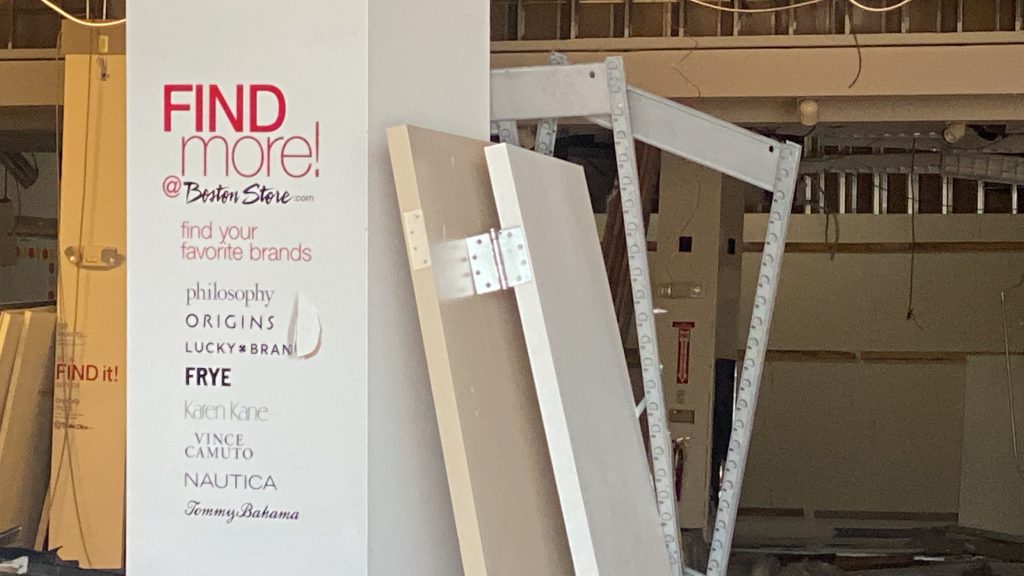 FIND
more!
@ Boston Store.com
find your
favorite brands
philosophy
ORIGINS
LUCKY BRAN
FRYE
Karen Kane
VINCE
CAMUTO
NAUTICA
Tommy Bahama
FIND it!